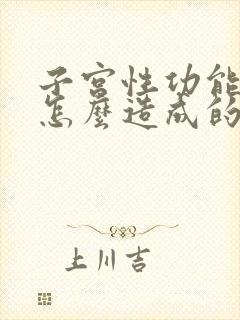 子宮性功能
怎麼造成的
上川吉